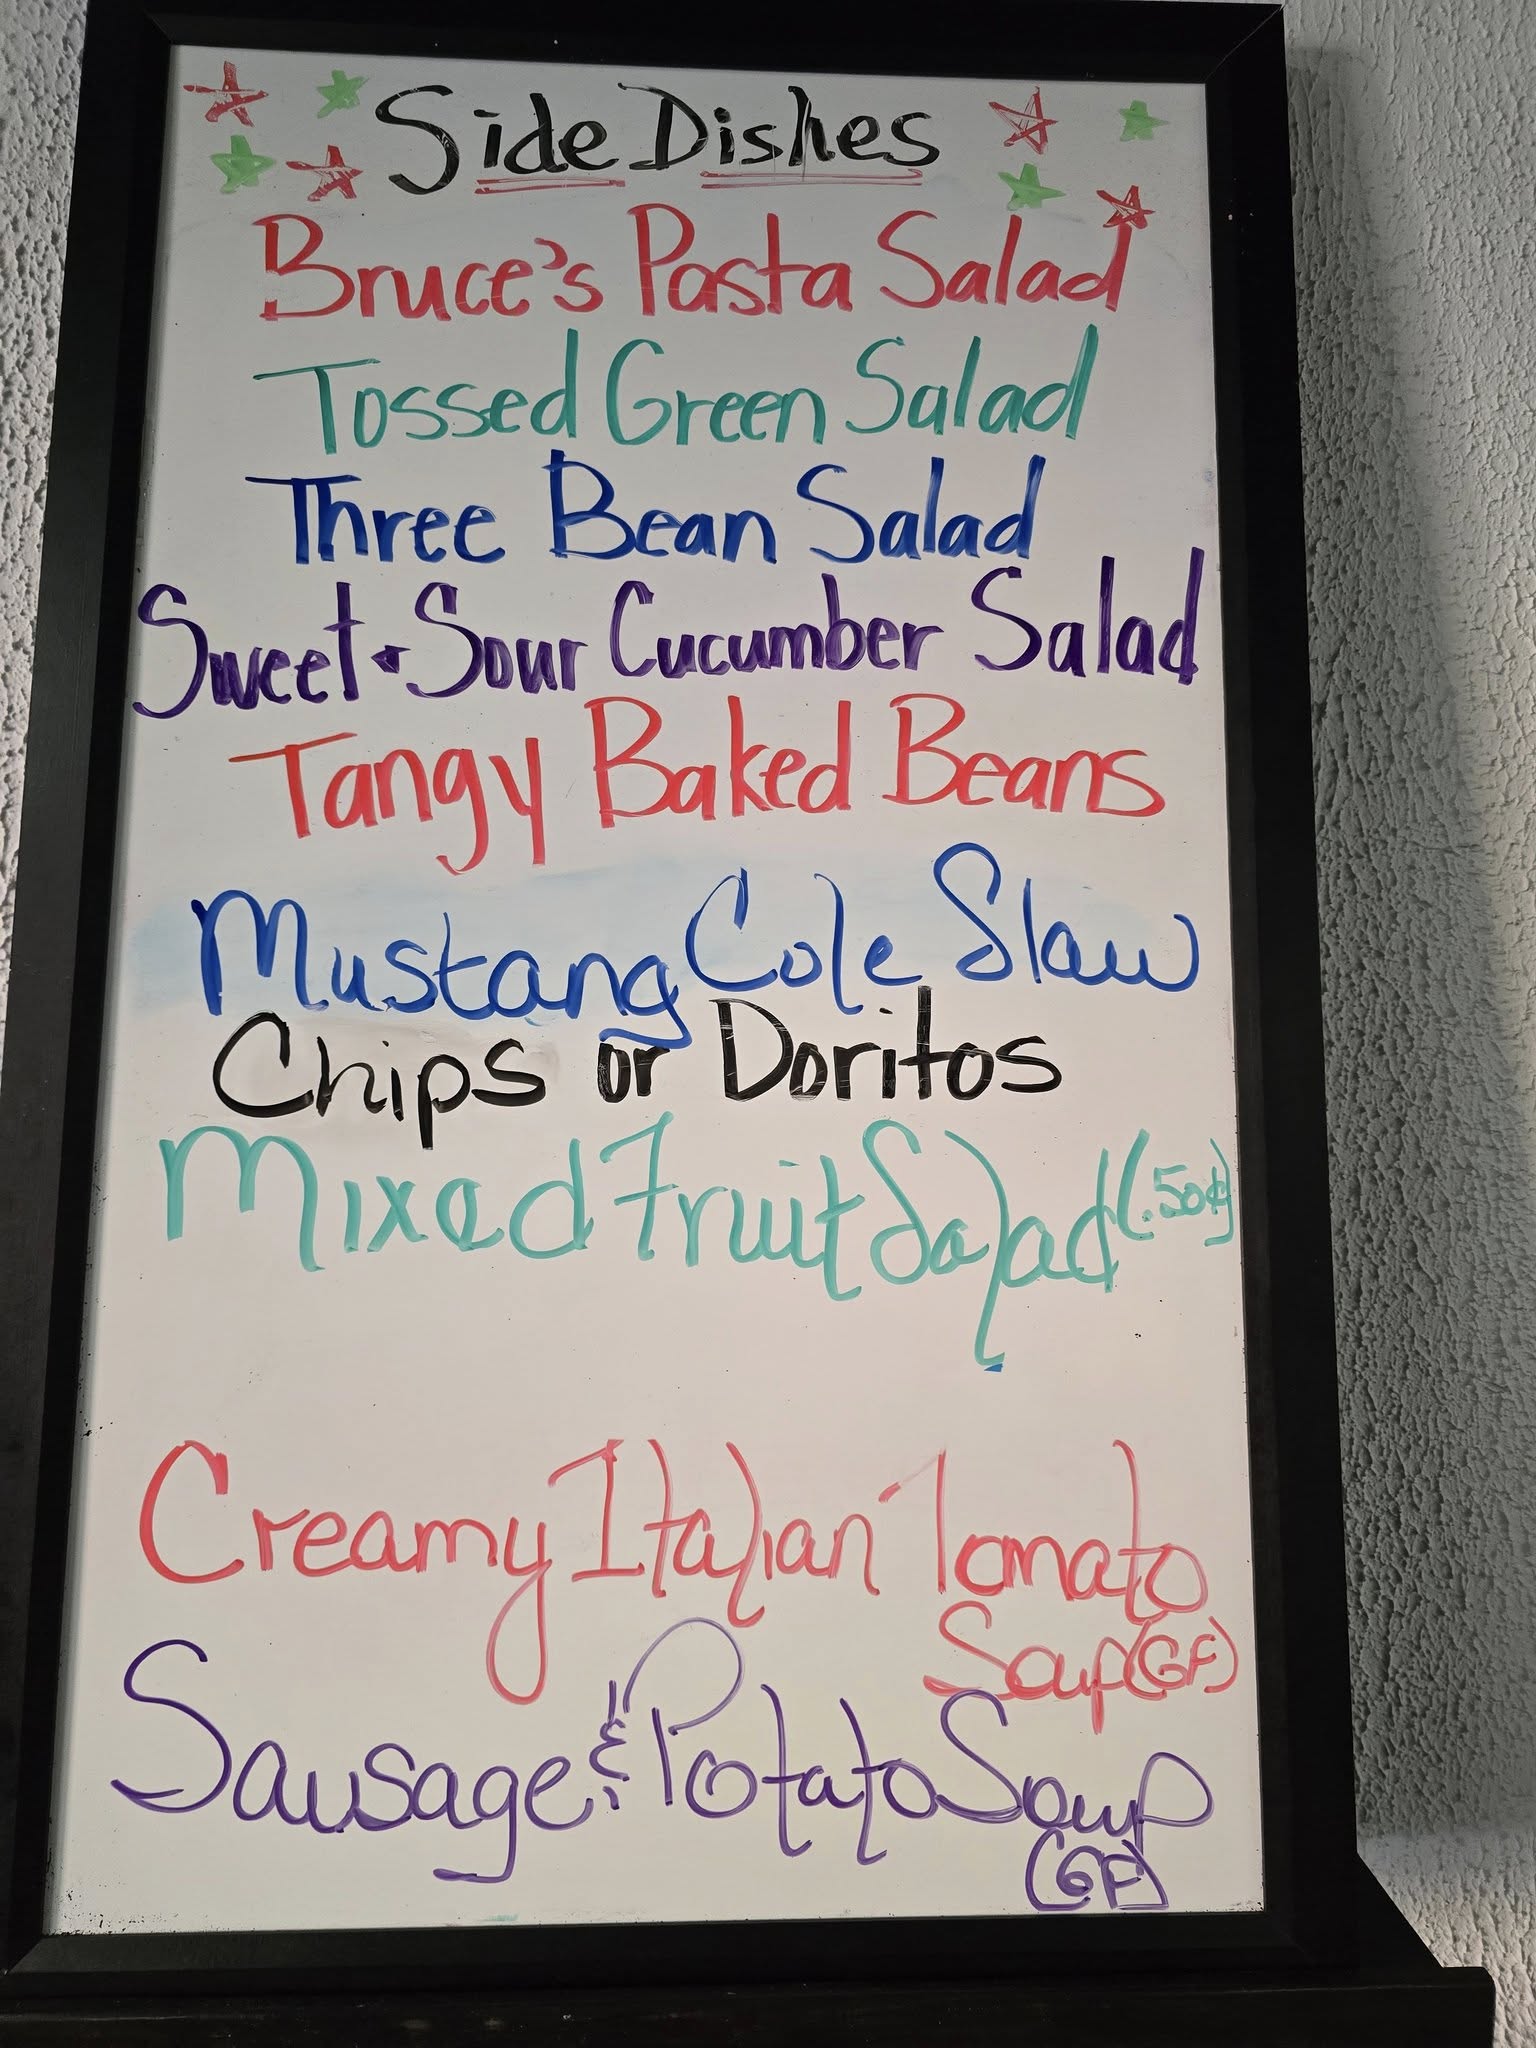 Side Dishes
Bruce's Pasta Salad
Tossed Green Salad
Three Bean Salad
Sweet + Sour Cucumber Salad
Tangy Baked Beans
Mustang Cole Slaw
Chips or Doritos
Mixed Fruit Salad (.50¢)
Creamy Italian Tomato
Soup (GF)
Sausage & Potato Soup
(GF)